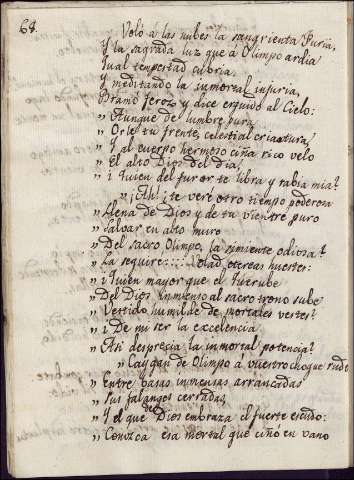 68.
Voló á las nubes la sangrienta Furia,
Y la sagrada luz que á Olimpo ardia
Qual tempestad cubria.
Y meditando la inmortal injuria,
Bramó feroz y dice erguido al Cielo:
„ Aunque de lumbre pura
„ Orle tu frente, celestial criatura,
„ Y al cuerpo hermoso ciña rico velo
„ El alto Dios del dia,
„ ¿ Quien del furor te libra y rabia mia?
„ ¡Ah! ¡te veré otro tiempo poderosa
„ Llena de Dios y de tu vientre puro
„ Salvar en alto muro
„ Del sacro Olimpo, la simiente odiosa?
„ La seguiré::::: Volad etereas huestes:
„ ¿Quien mayor que el Querube
„ Del Dios inmenso al sacro trono sube
„ Vestido humilde de mortales vestes?
„ ¿De mi ser la excelencia
„ Asi desprecia la inmortal potencia?
„ Caygan de Olimpo á vuestro choque rudo
„ Entre basas inmensas arrancadas
„ Sus falanges cerradas,
„ Y el que de Dios embraza el fuerte escudo:
„ Conozca esa mortal que ciñó en vano